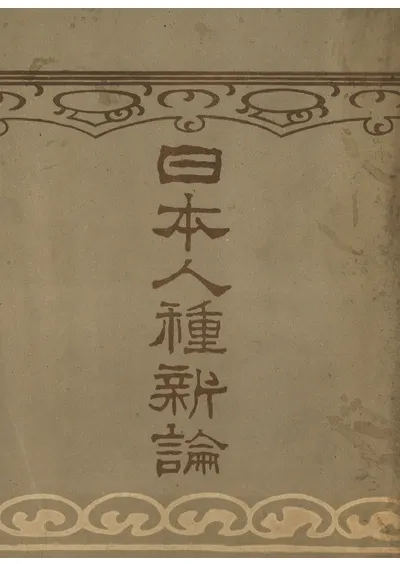 日本人種新論